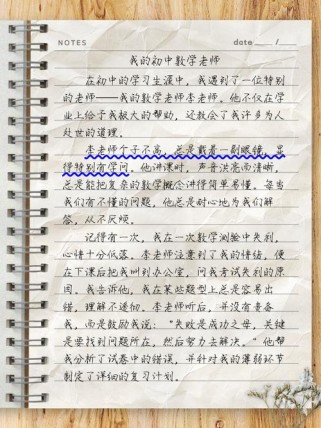 NOTES
date: ___ /___
我的初中数学老师
在初中的学习生涯中，我遇到了一位特别
的老师——我的数学老师李老师。他不仅在学
业上给予我极大的帮助，还教会了我许多为人
处世的道理。
李老师个子不高，总是戴着一副眼镜，显
得特别有学问。他讲课时，声音洪亮而清晰，
总是能把复杂的数学概念讲得简单易懂。每当
我们有不懂的问题，他总是耐心地为我们解
答，从不厌烦。
记得有一次，我在一次数学测验中失利，
心情十分低落。李老师注意到了我的情绪，便
在下课后把我叫到办公室，问我考试失利的原
因。我告诉他，我在某些题型上总是容易出
错，理解不透彻。李老师听后，并没有责备
我，而是鼓励我说：“失败是成功之母，关键
是要找到问题所在，然后努力去解决。”他帮
我分析了试卷中的错误，并针对我的薄弱环节
制定了详细的复习计划。